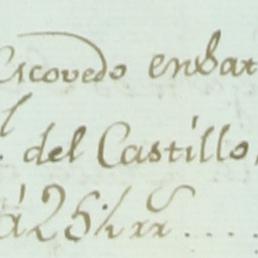 Escovedo enbar
l. del Castillo,
á 25½ rr ....